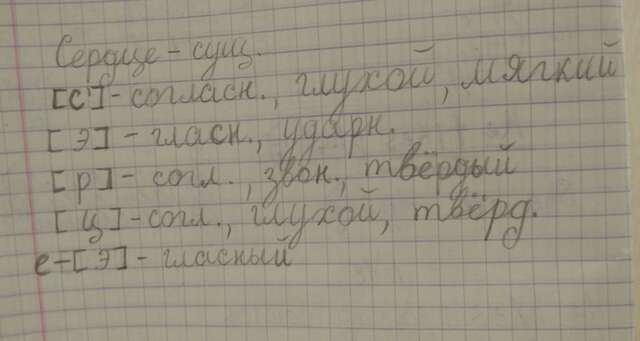 Сердце - сущ.
[с] - согласн., глухой, мягкий
[э] - гласн., ударн.
[р] - согл., звон., твёрдый
[ц] - согл., глухой, твёрд.
е - [э] - гласный